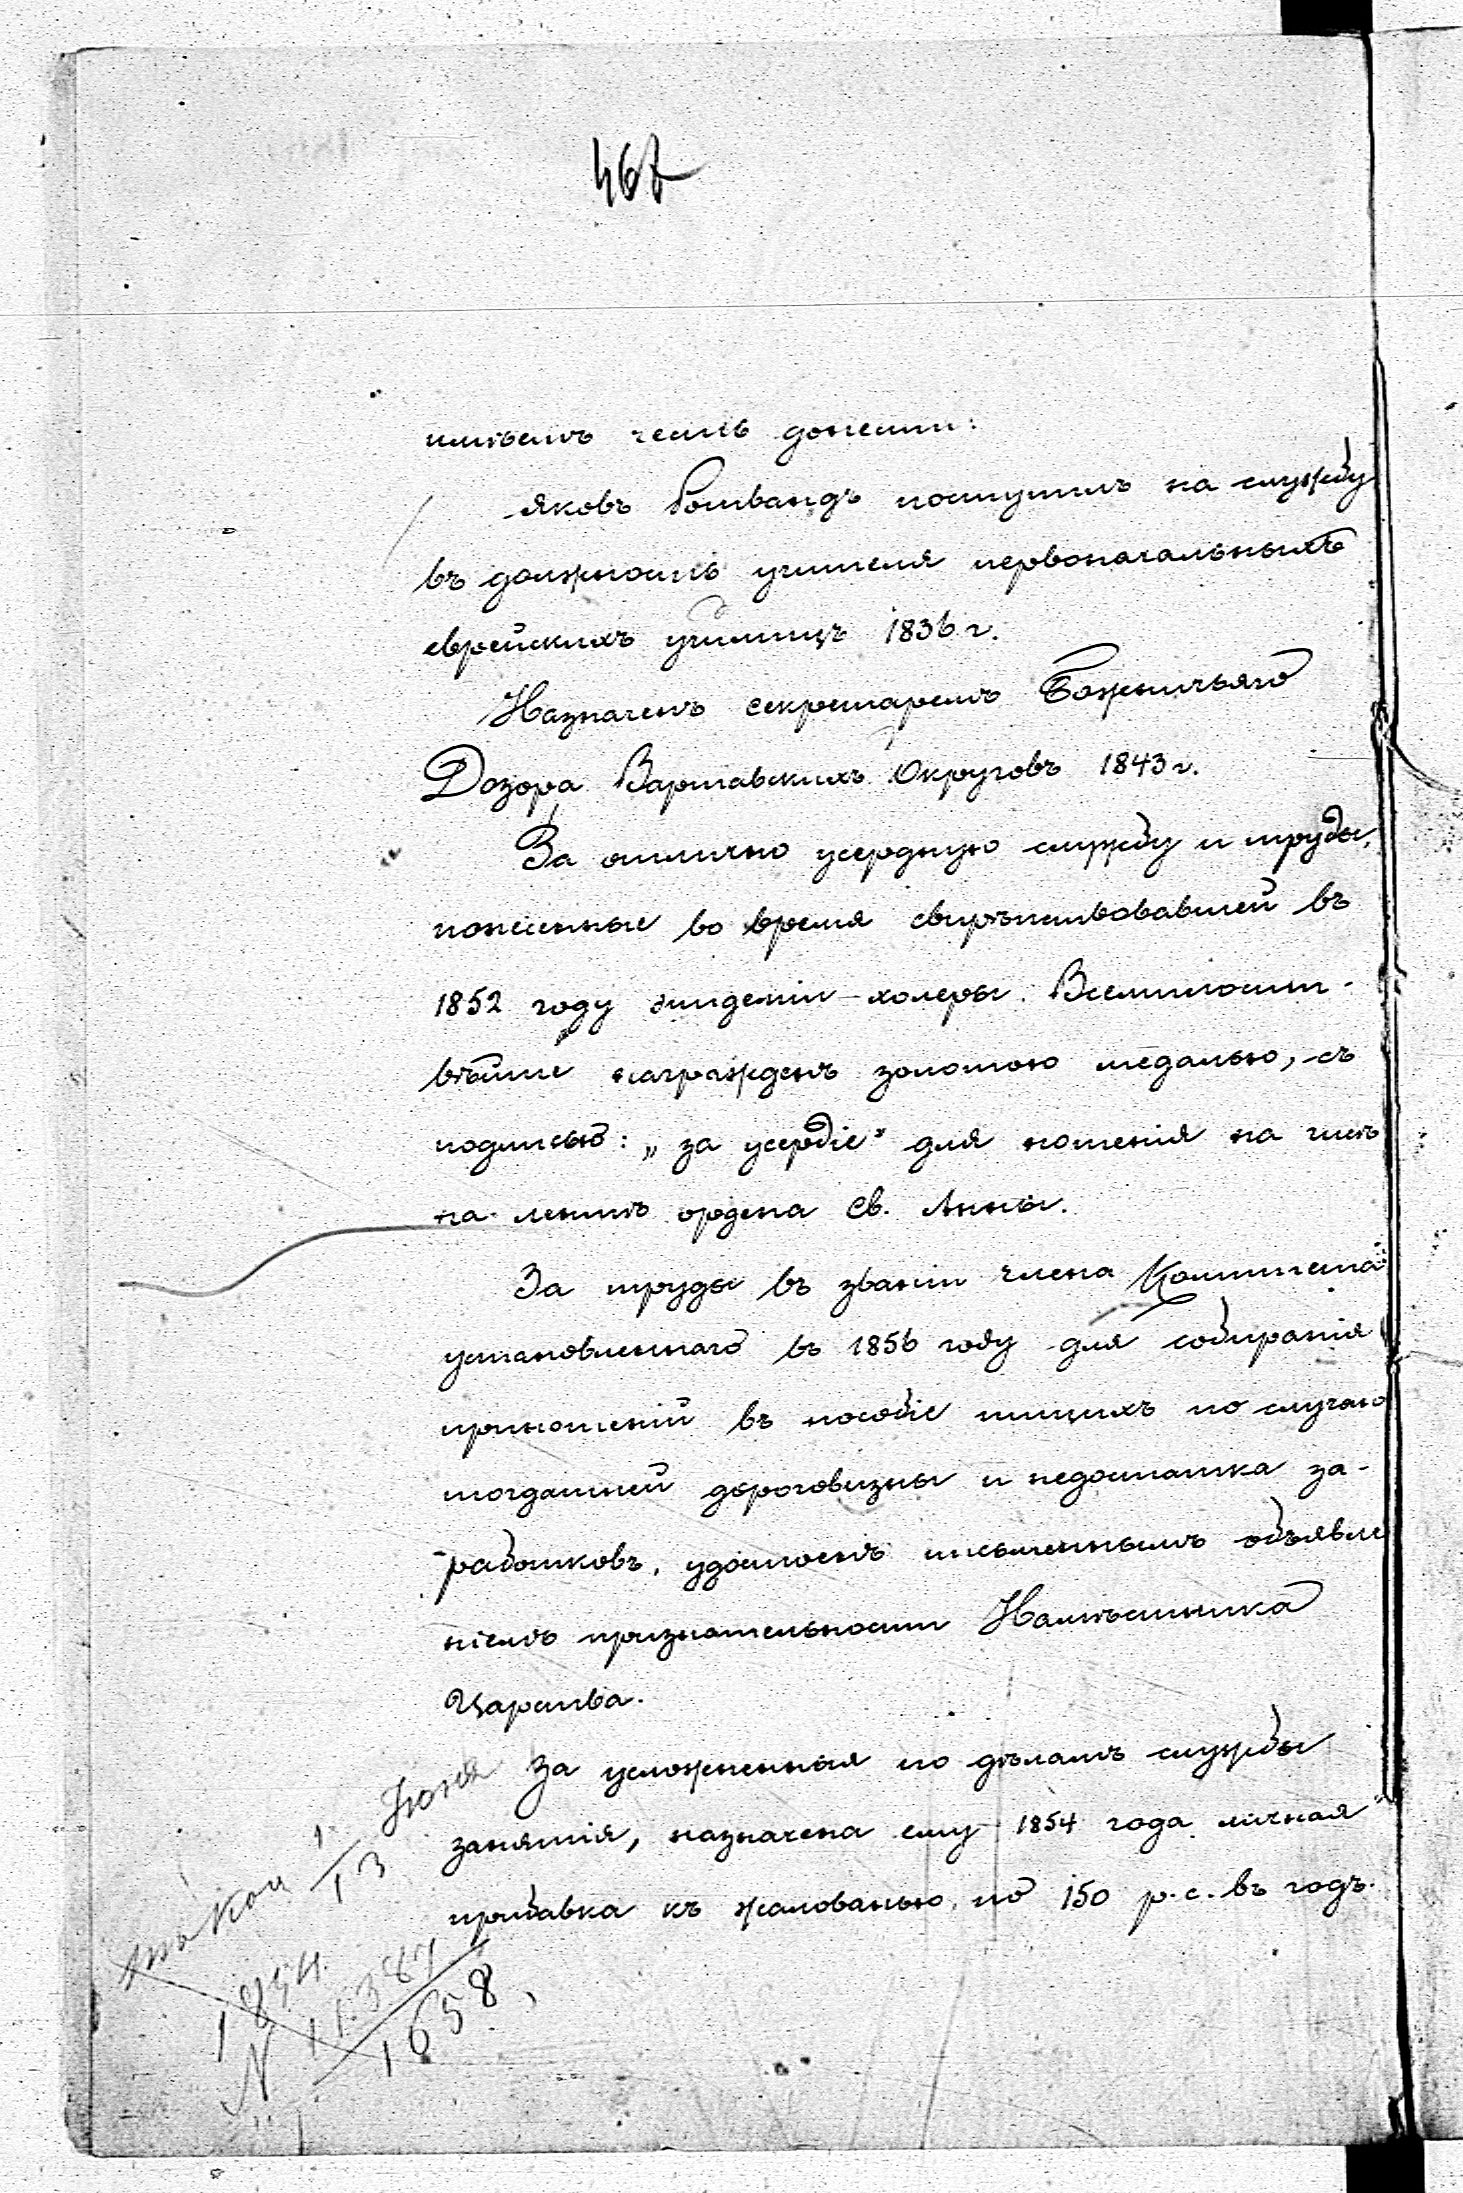 467
имѣемъ честь донести:
Яковъ Ротвандъ поступилъ на службу
въ должность учителя первоначальныхъ
еврейскихъ училищъ 1836 г.
Назначенъ секретаремъ Божничьяго
Дозора Варшавскихъ Округовъ 1843 г.
За отлично усердную службу и труды,
понесенные во время свирѣпствовавшей въ
1852 году эпидеміи холеры. Всемилости-
вѣйше награжденъ золотою медалью, съ
подписью: „за усердіе" для ношенія на шеѣ
на лентѣ ордена Св. Анны.
За труды въ званіи члена Комитета
установленнаго въ 1856 году для собиранія
приношеній въ пособіе нищихъ по случаю
тогдашней дороговизны и недостатка за-
работковъ, удостоенъ письменнымъ объявле
ніемъ признательности Намѣстника
Царства.
За усложненныя по дѣламъ службы
занятія, назначена ему 1854 года личная
прибавка къ жалованью по 150 р. с. въ годъ.
1/13 Іюня
1854.
N 11387/1658,